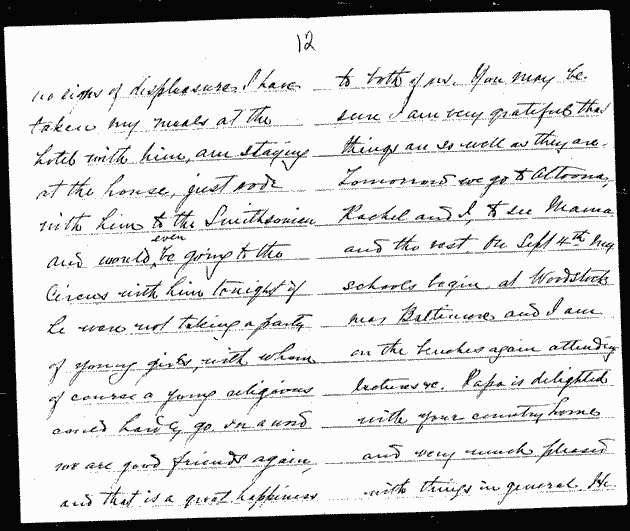 12
no signs of displeasure. I have
taken my meals at the
hotel with him, am staying
at the house, just rode
with him to the Smithsonian
and would even be going to the
Circus with him tonight if
he were not taking a party
of young girls, with whom
of course a young religious
could hardly go. In a word
we are good friends again,
and that is a great happiness
to both of us. You may be
sure I am very grateful that
things are so well as they are.
Tomorrow we go to Altoona,
Rachel and I, to see Mama
and the rest. On Sept 4th my
schools begin at Woodstock
near Baltimore and I am
on the benches again attending
lectures &c. Papa is delighted
with your country home
and very much pleased
with things in general. He